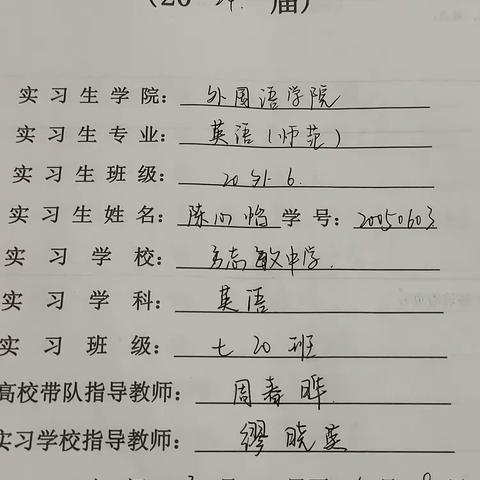 (20 届)
实习生学院：外国语学院
实习生专业：英语(师范)
实习生班级：20外6.
实习生姓名：陈 怡 学号：20050603
实习学校：方志敏中学.
实习学科：英语
实习班级：七20班
高校带队指导教师：周春晔
实习学校指导教师：缪晓英